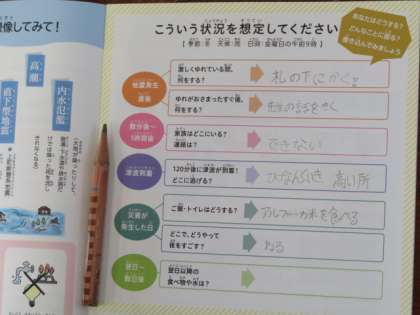 想像してみて!
高潮
内水氾濫
直下型地震
こういう状況を想定してください
【季節:冬 天候:雨 日時:金曜日の午前9時】
あなたはどうする?
どんなことに困る?
書き込んでみましょう
地震発生
直後
激しくゆれている間、
何をする?
机の下にかくる
ゆれがおさまったすぐ後、
何をする?
数分後〜
1時間後
家族はどこにいる?
連絡は?
できない
津波到着
120分後に津波が到着!
どこに逃げる?
高い所
災害が
発生した日
ご飯・トイレはどうする?
アルファ米を食べる
どこで、どうやって
夜をすごす?
ねる
翌日〜
数日後
翌日以降の
食べ物や水は?